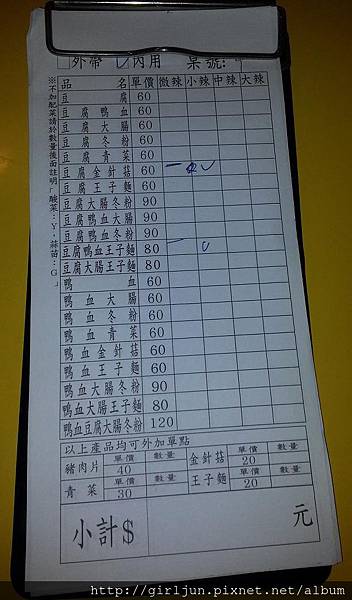 外帶 ✓內用 桌號:
品名 單價 微辣 小辣 中辣 大辣
豆腐 60
豆腐鴨血 60
豆腐大腸 60
豆腐冬粉 60
豆腐青菜 60
豆腐金針菇 60 一
豆腐王子麵 60
豆腐大腸冬粉 90
豆腐鴨血大腸 90
豆腐鴨血冬粉 90
豆腐鴨血王子麵 80 一
豆腐大腸王子麵 80
鴨血 60
鴨血大腸 60
鴨血冬粉 60
鴨血青菜 60
鴨血金針菇 60
鴨血王子麵 60
鴨血大腸冬粉 90
鴨血大腸王子麵 80
鴨血豆腐大腸冬粉 120
※不加配菜請於數量後面註明「酸菜:Y,蒜苗:G」
以上產品均可外加單點
豬肉片 單價 40 數量 金針菇 單價 20 數量
青菜 單價 30 數量 王子麵 單價 20 數量
小計$ 元
http://girljun.pixnet.net/album